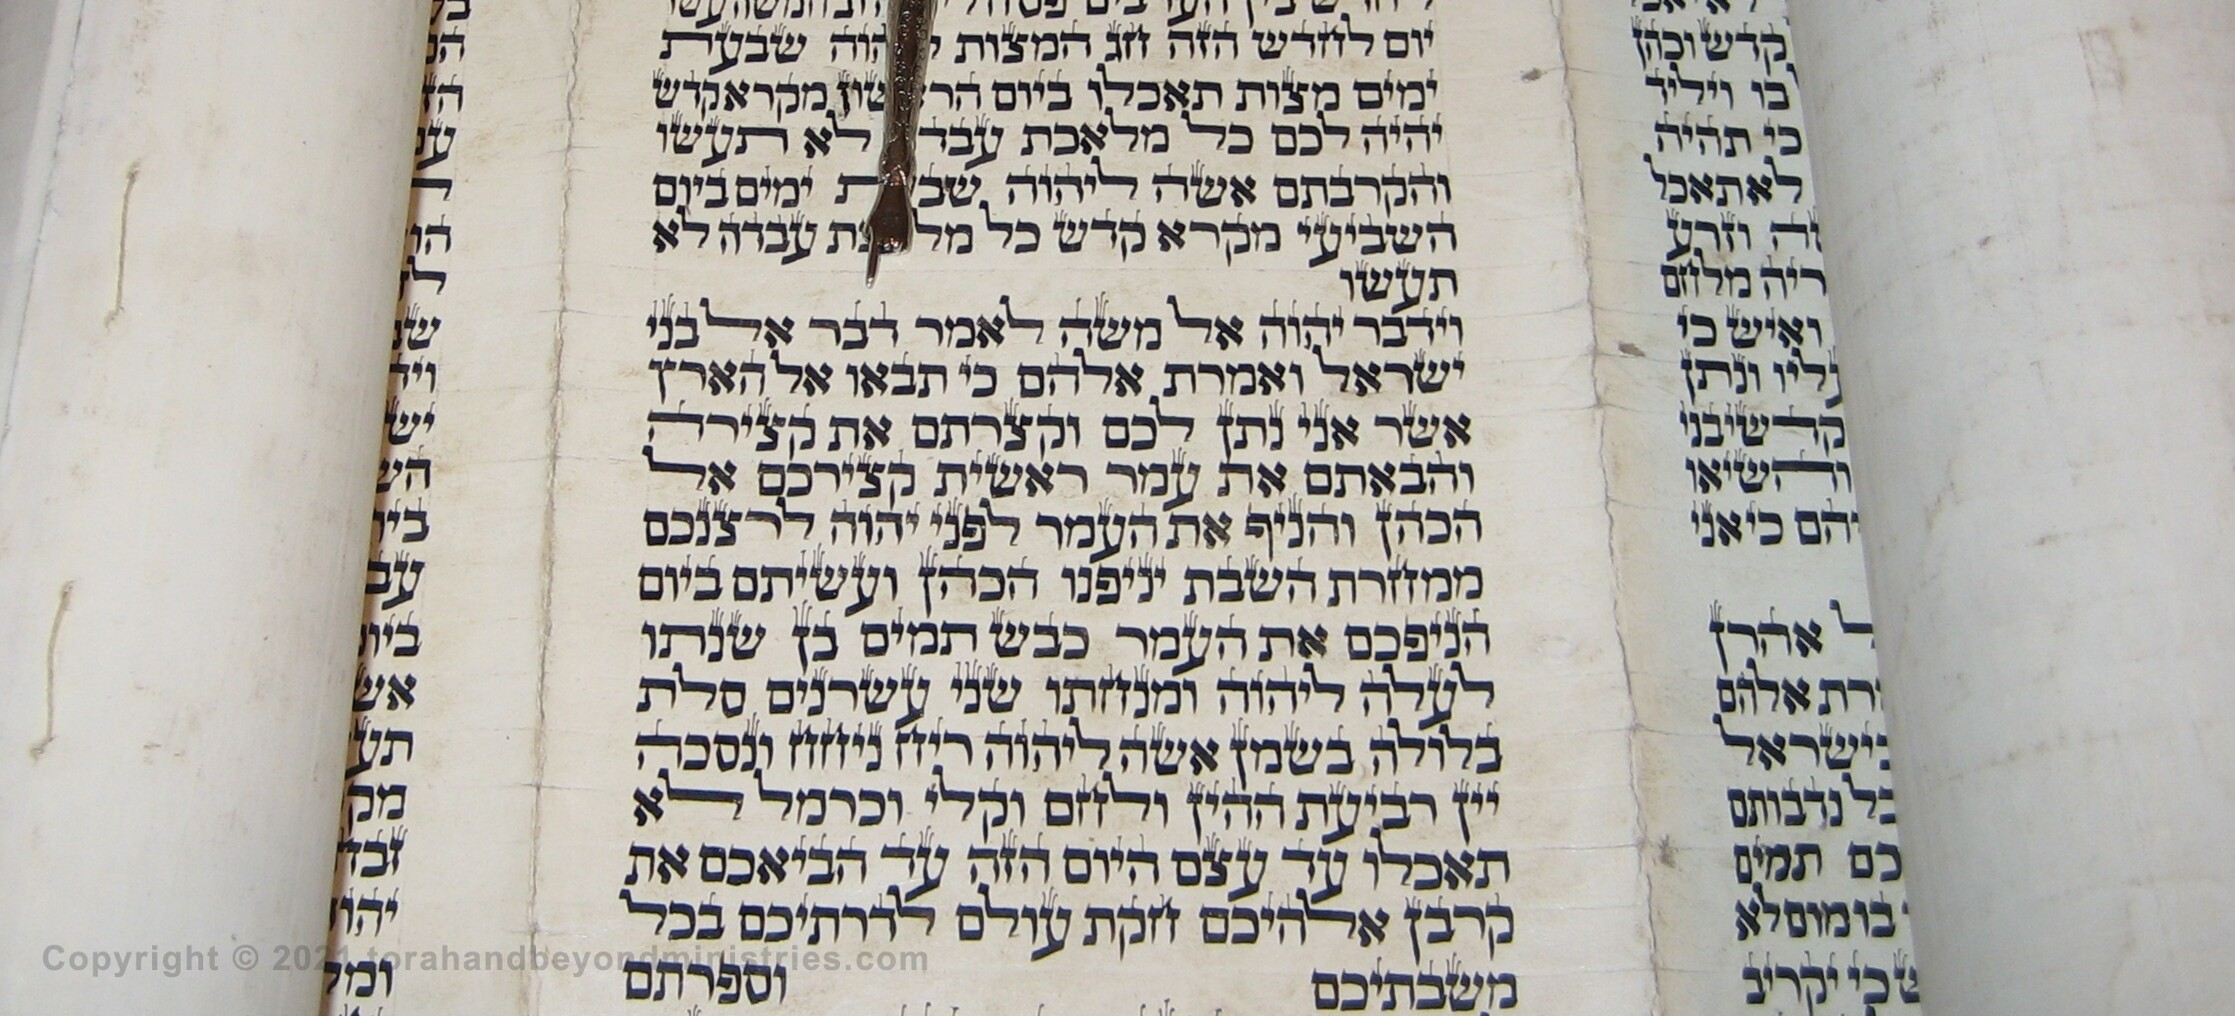 קדש וכהן
בו ויליד
כי תהיה
לא תאכל
וזרע
מלחם
ואיש כי
ונתן
קדשי בני
והשיאו
כי אני
אהרן
אלהם
בישראל
נדבותם
תמים
בו מום לא
כי יקריב
בין הערבים פסח
יום לחדש הזה חג המצות ליהוה שבעת
ימים מצות תאכלו ביום הראשון מקרא קדש
יהיה לכם כל מלאכת עבדה לא תעשו
והקרבתם אשה ליהוה שבעת ימים ביום
השביעי מקרא קדש כל מלאכת עבדה לא
תעשו
וידבר יהוה אל משה לאמר דבר אל בני
ישראל ואמרת אלהם כי תבאו אל הארץ
אשר אני נתן לכם וקצרתם את קצירה
והבאתם את עמר ראשית קצירכם אל
הכהן והניף את העמר לפני יהוה לרצנכם
ממחרת השבת יניפנו הכהן ועשיתם ביום
הניפכם את העמר כבש תמים בן שנתו
לעלה ליהוה ומנחתו שני עשרנים סלת
בלולה בשמן אשה ליהוה ריח ניחח ונסכה
יין רביעת ההין ולחם וקלי וכרמל לא
תאכלו עד עצם היום הזה עד הביאכם את
קרבן אלהיכם חקת עולם לדרתיכם בכל
משבתיכם וספרתם
Copyright © 2021 torahandbeyondministries.com